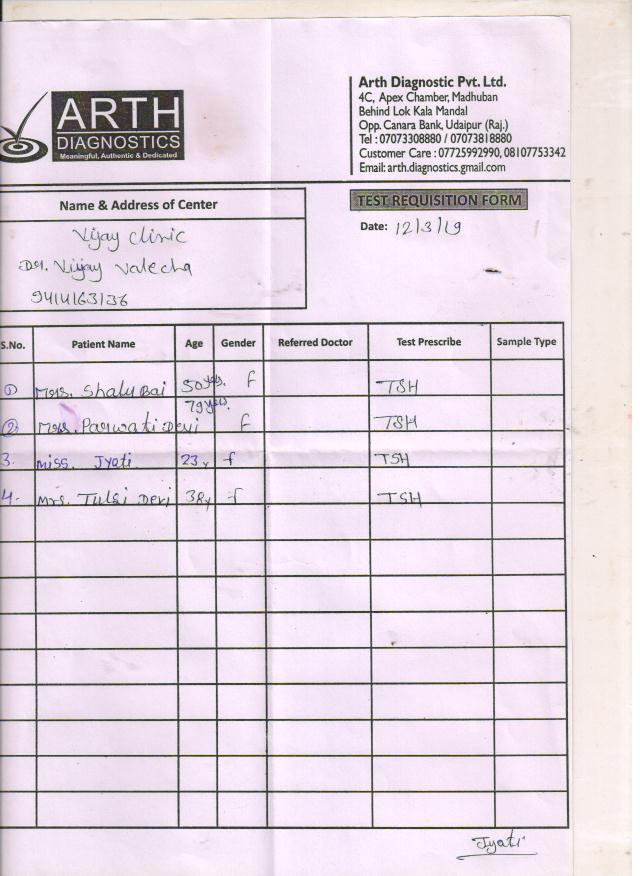 ARTH
DIAGNOSTICS
Meaningful, Authentic & Dedicated
Arth Diagnostic Pvt. Ltd.
4C, Apex Chamber, Madhuban
Behind Lok Kala Mandal
Opp. Canara Bank, Udaipur (Raj.)
Tel : 07073308880 / 07073818880
Customer Care : 07725992990, 08107753342
Email: arth.diagnostics.gmail.com
Name & Address of Center
Vijay clinic
Dr. Vijay Valecha
9414163136
TEST REQUISITION FORM
Date: 12/3/19
S.No. Patient Name Age Gender Referred Doctor Test Prescribe Sample Type
① Mrs. Shalu Bai 50 yrs. f TSH
② Mrs. Parwati Devi 79 yrs. f TSH
3. Miss. Jyoti 23y f TSH
4. Mrs. Tulsi Devi 38y f TSH
Jyoti